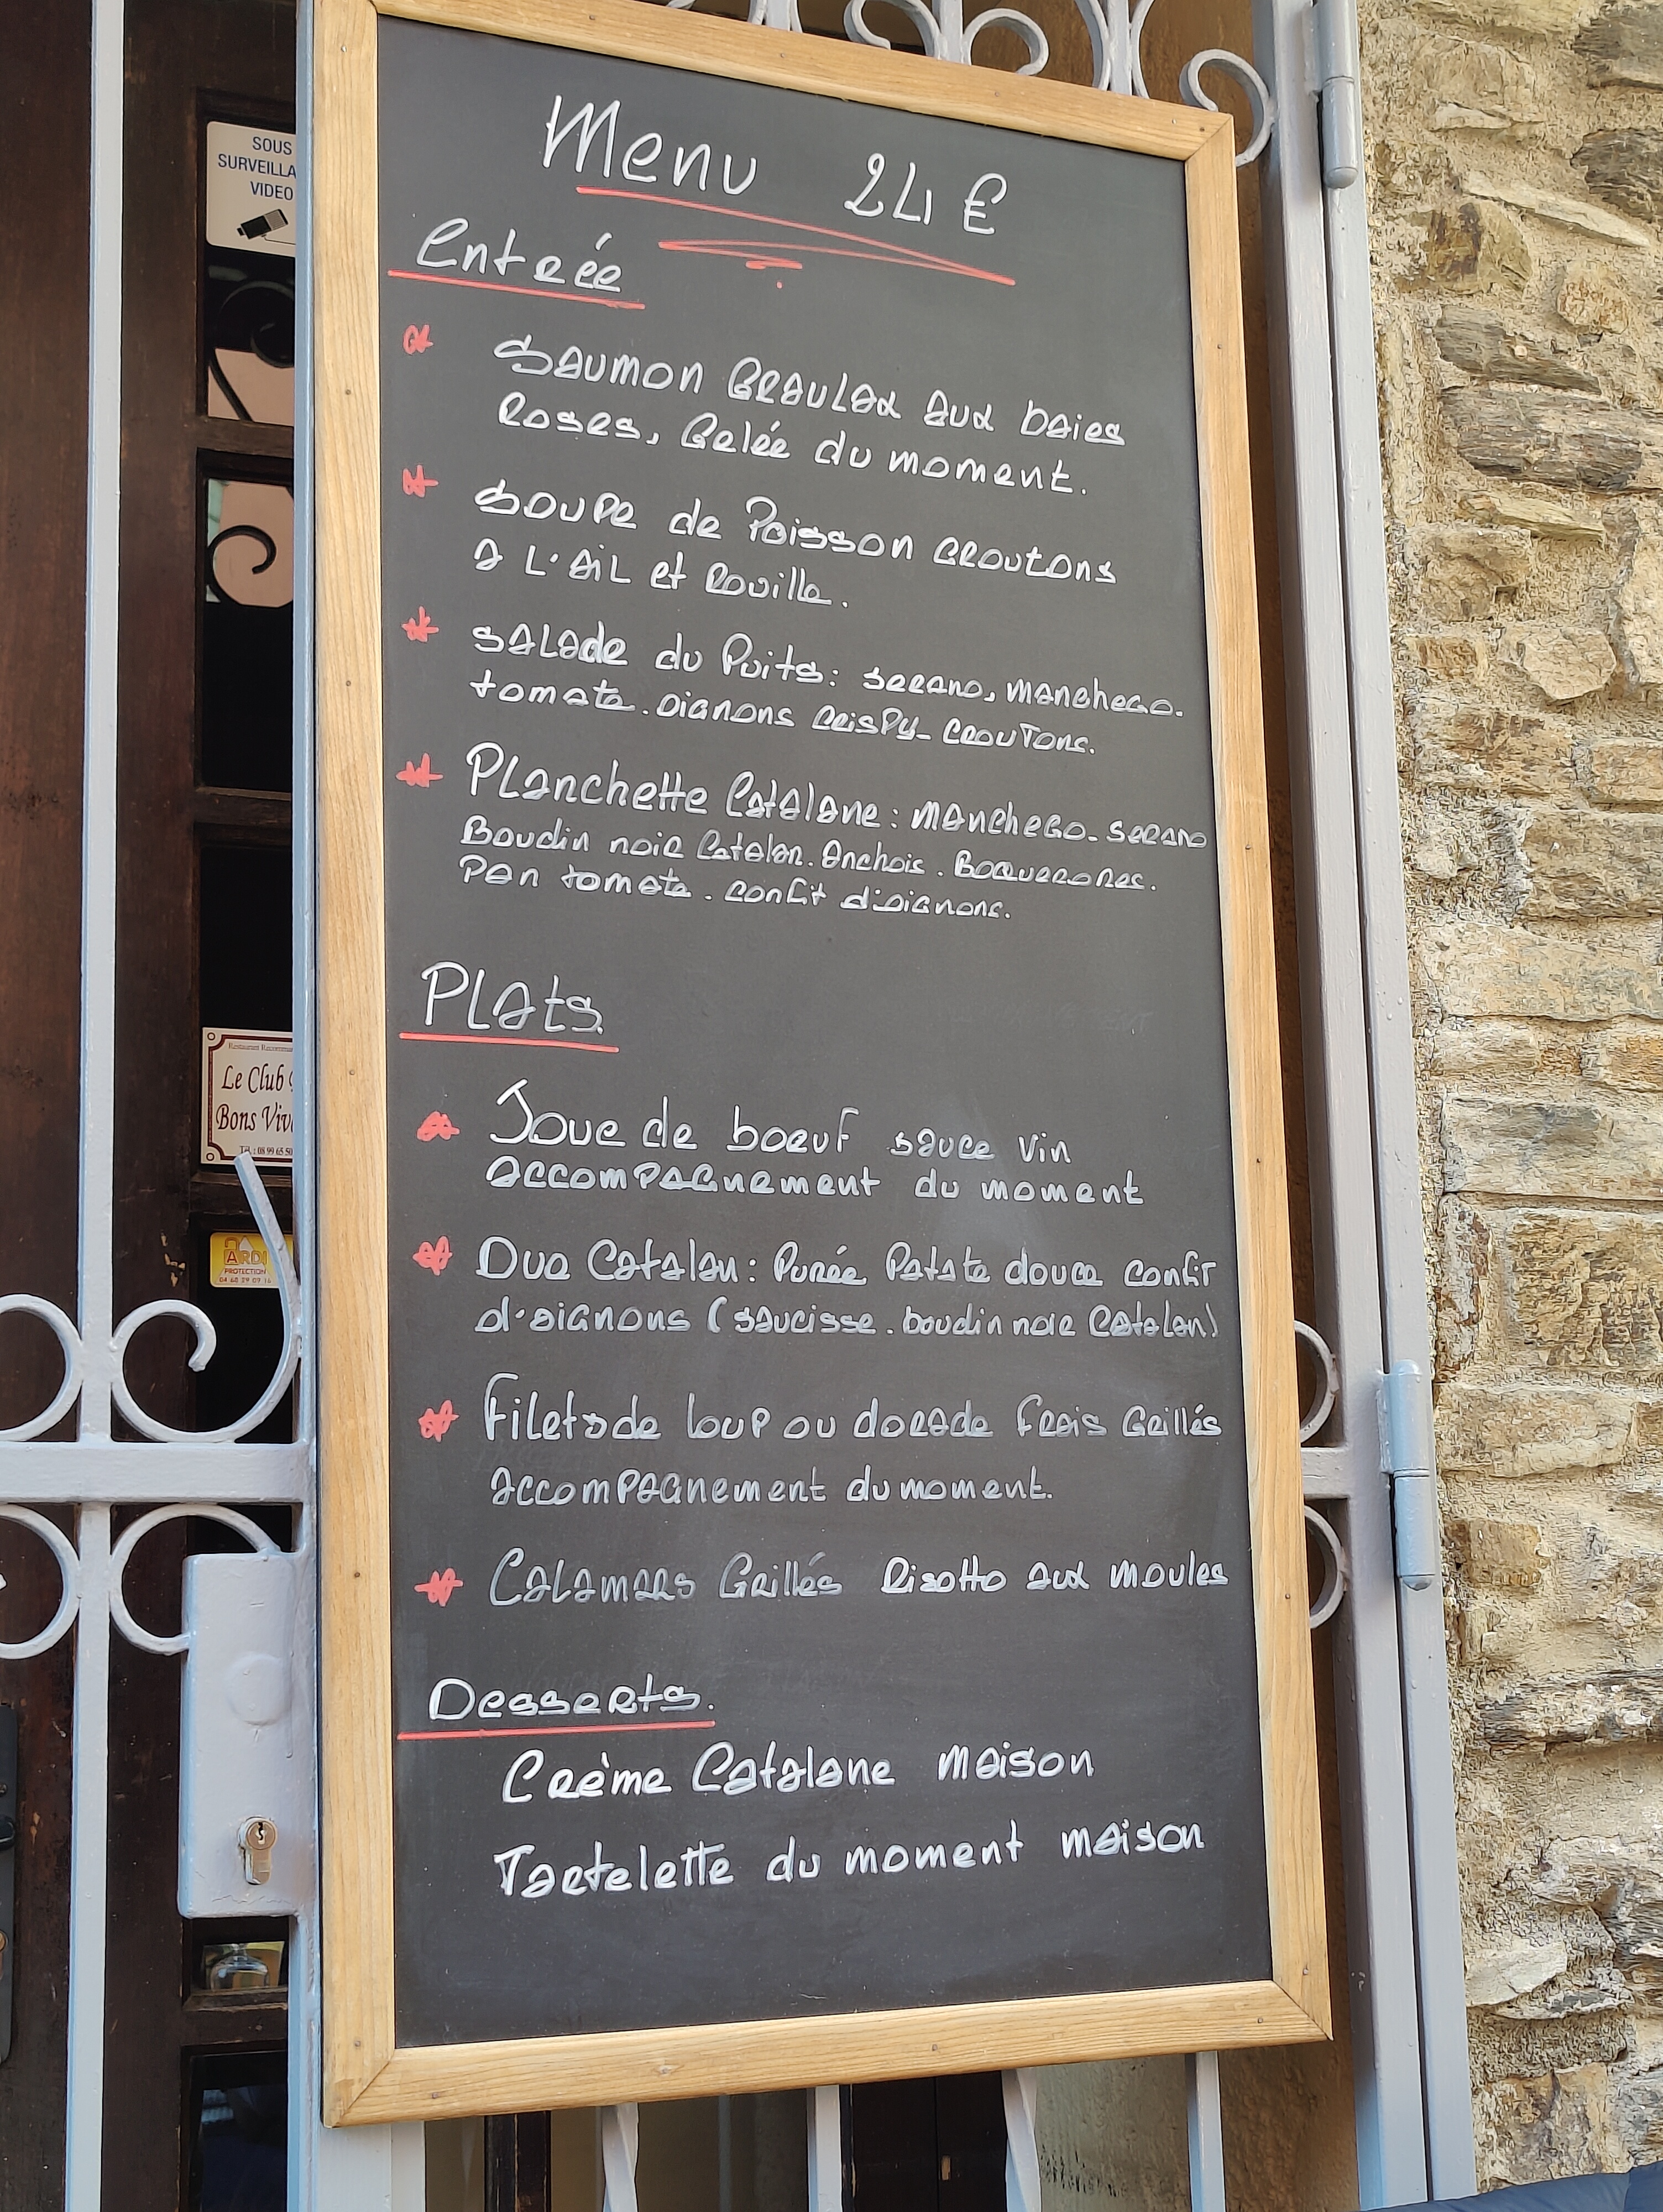 SOUS
SURVEILLA
VIDEO
Menu 24 €
Entrée
Saumon Graulax aux baies
Roses, Gelée du moment.
Soupe de Poisson croutons
a L'ail et Rouille.
Salade du Puits: serano, manchego.
tomate. oignons crispy_ croutons.
Planchette Catalane: manchego_ serano
Boudin noir Catalan. Anchois. Boquerones.
Pan tomate. confit d'oignons.
Plats
Joue de boeuf sauce vin
accompagnement du moment
Duo Catalan: Purée Patate douce confit
d'oignons (saucisse. boudin noir Catalan)
Filets de loup ou dorade frais Grillés
accompagnement du moment.
Calamars Grillés Risotto aux moules
Desserts.
Crème Catalane maison
Tartelette du moment maison
Restaurant Recomma
Le Club
Bons Viv
Tél : 08 99 65 50
ARDI
PROTECTION
04 68 29 07 16